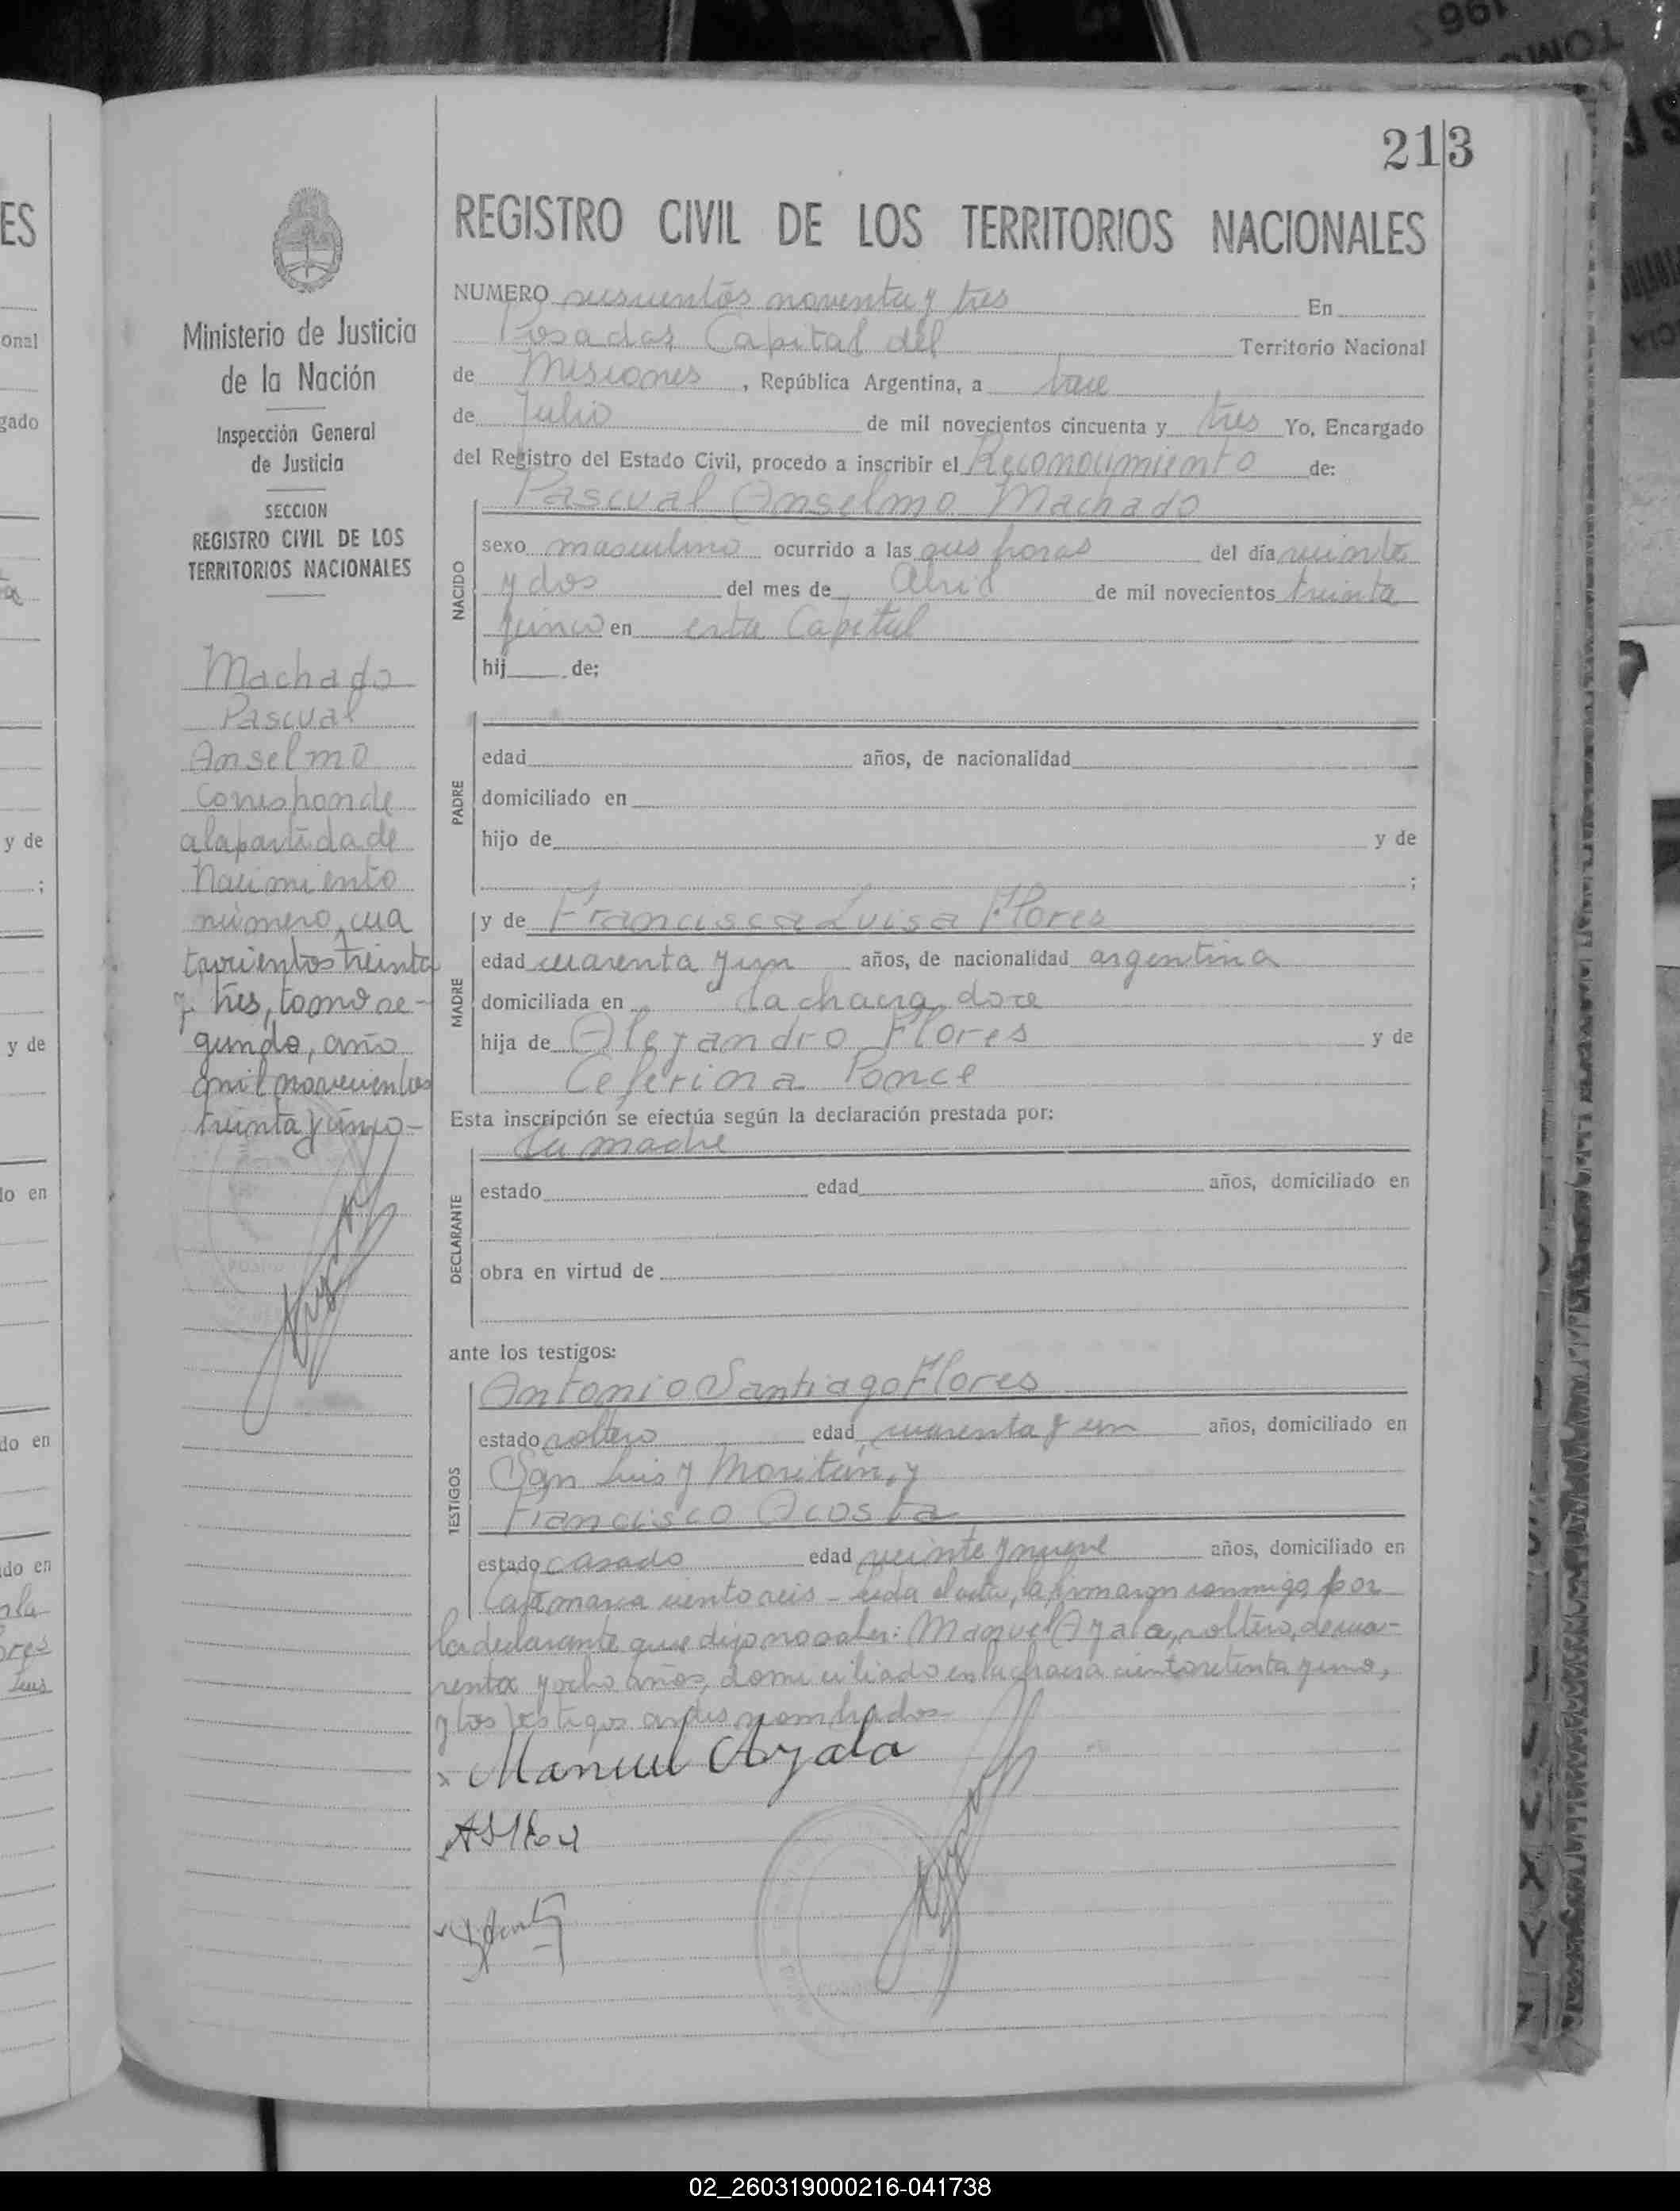 213
REGISTRO CIVIL DE LOS TERRITORIOS NACIONALES
Ministerio de Justicia
de la Nación
Inspección General
de Justicia
SECCION
REGISTRO CIVIL DE LOS
TERRITORIOS NACIONALES
Machado
Pascual
Anselmo
Corresponde
a la partida de
Nacimiento
número cua
trocientos treinta
y tres, tomo se-
gundo, año
mil novecientos
treinta y cinco-
NUMERO seiscientos noventa y tres En
Posadas Capital del Territorio Nacional
de Misiones, República Argentina, a trece
de Julio de mil novecientos cincuenta y tres Yo, Encargado
del Registro del Estado Civil, procedo a inscribir el Reconocimiento de:
Pascual Anselmo Machado
NACIDO
sexo masculino ocurrido a las horas del día veinte
y dos del mes de Abril de mil novecientos treinta
cinco en esta Capital
hij de;
PADRE
edad años, de nacionalidad
domiciliado en
hijo de y de
;
MADRE
y de Francisca Luisa Flores
edad cuarenta y un años, de nacionalidad argentina
domiciliada en la chacra doce
hija de Alejandro Flores y de
Ceferina Ponce
Esta inscripción se efectúa según la declaración prestada por:
DECLARANTE
La madre
estado edad años, domiciliado en
obra en virtud de
ante los testigos:
TESTIGOS
Antonio Santiago Flores
estado soltero edad cuarenta y un años, domiciliado en
San Luis y y
Francisco Acosta
estado casado edad veinte y nueve años, domiciliado en
Catamarca ciento seis - Leida el acta, la firmaron conmigo, por
la declarante que dijo no saber: Manuel Ayala, soltero, de cua-
renta y ocho años, domiciliado en la chacra ciento setenta y uno,
y los testigos antes nombrados-
Manuel Ayala
02_260319000216-041738